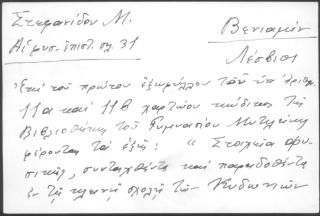 Στεφανίδου Μ.
Βενιαμὶν
Λέσβιος
ἐπιστ. σλ. 31
Ἐπὶ τοῦ πρώτου ἐξωφύλλου τῶν ὑπ' ἀριθμ.
11α καὶ 11β χαρτώου κώδικος τῆς
Βιβλιοθήκης τοῦ Γυμνασίου Μυτιλήνης
φέρονται τὰ ἑξῆς: « Στοιχεῖα φυ-
σικῆς, συνταχθέντα καὶ παραδοθέντα
ἐν τῇ κλεινῇ σχολῇ τῶν Κυδωνιῶν